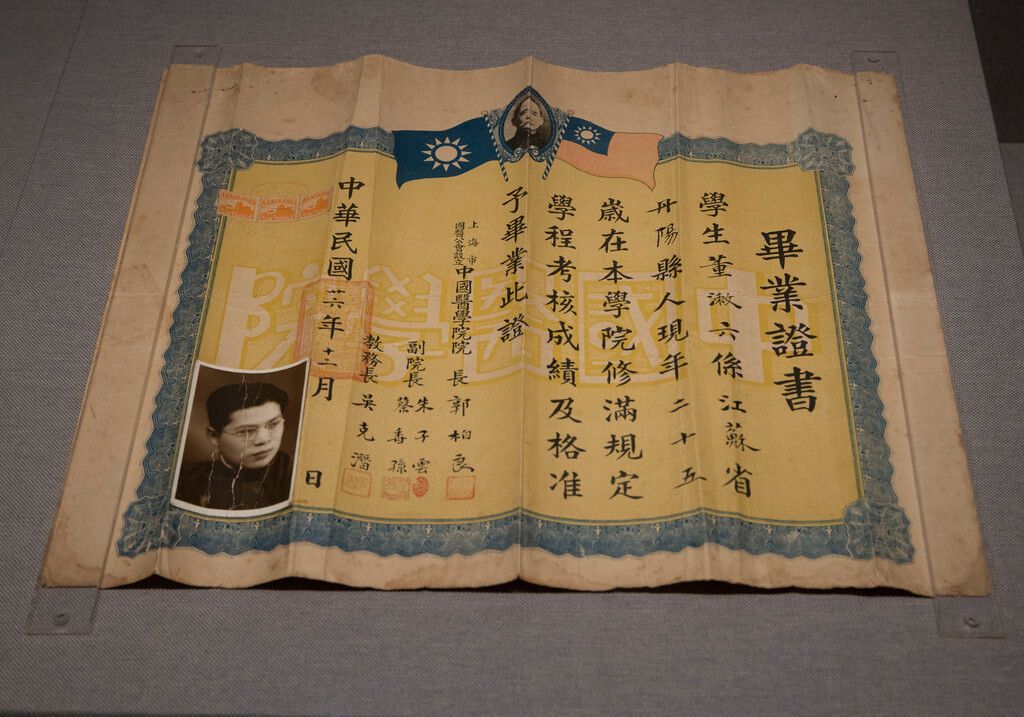 畢業證書
學生董漱六係江蘇省
丹陽縣人現年二十五
歲在本學院修滿規定
學程考核成績及格准
予畢業此證
上海市
國醫公會設立
中國醫學院院長郭柏良
副院長朱子雲
蔡香蓀
教務長吳克潛
中華民國廿六年十二月 日
中國醫學院